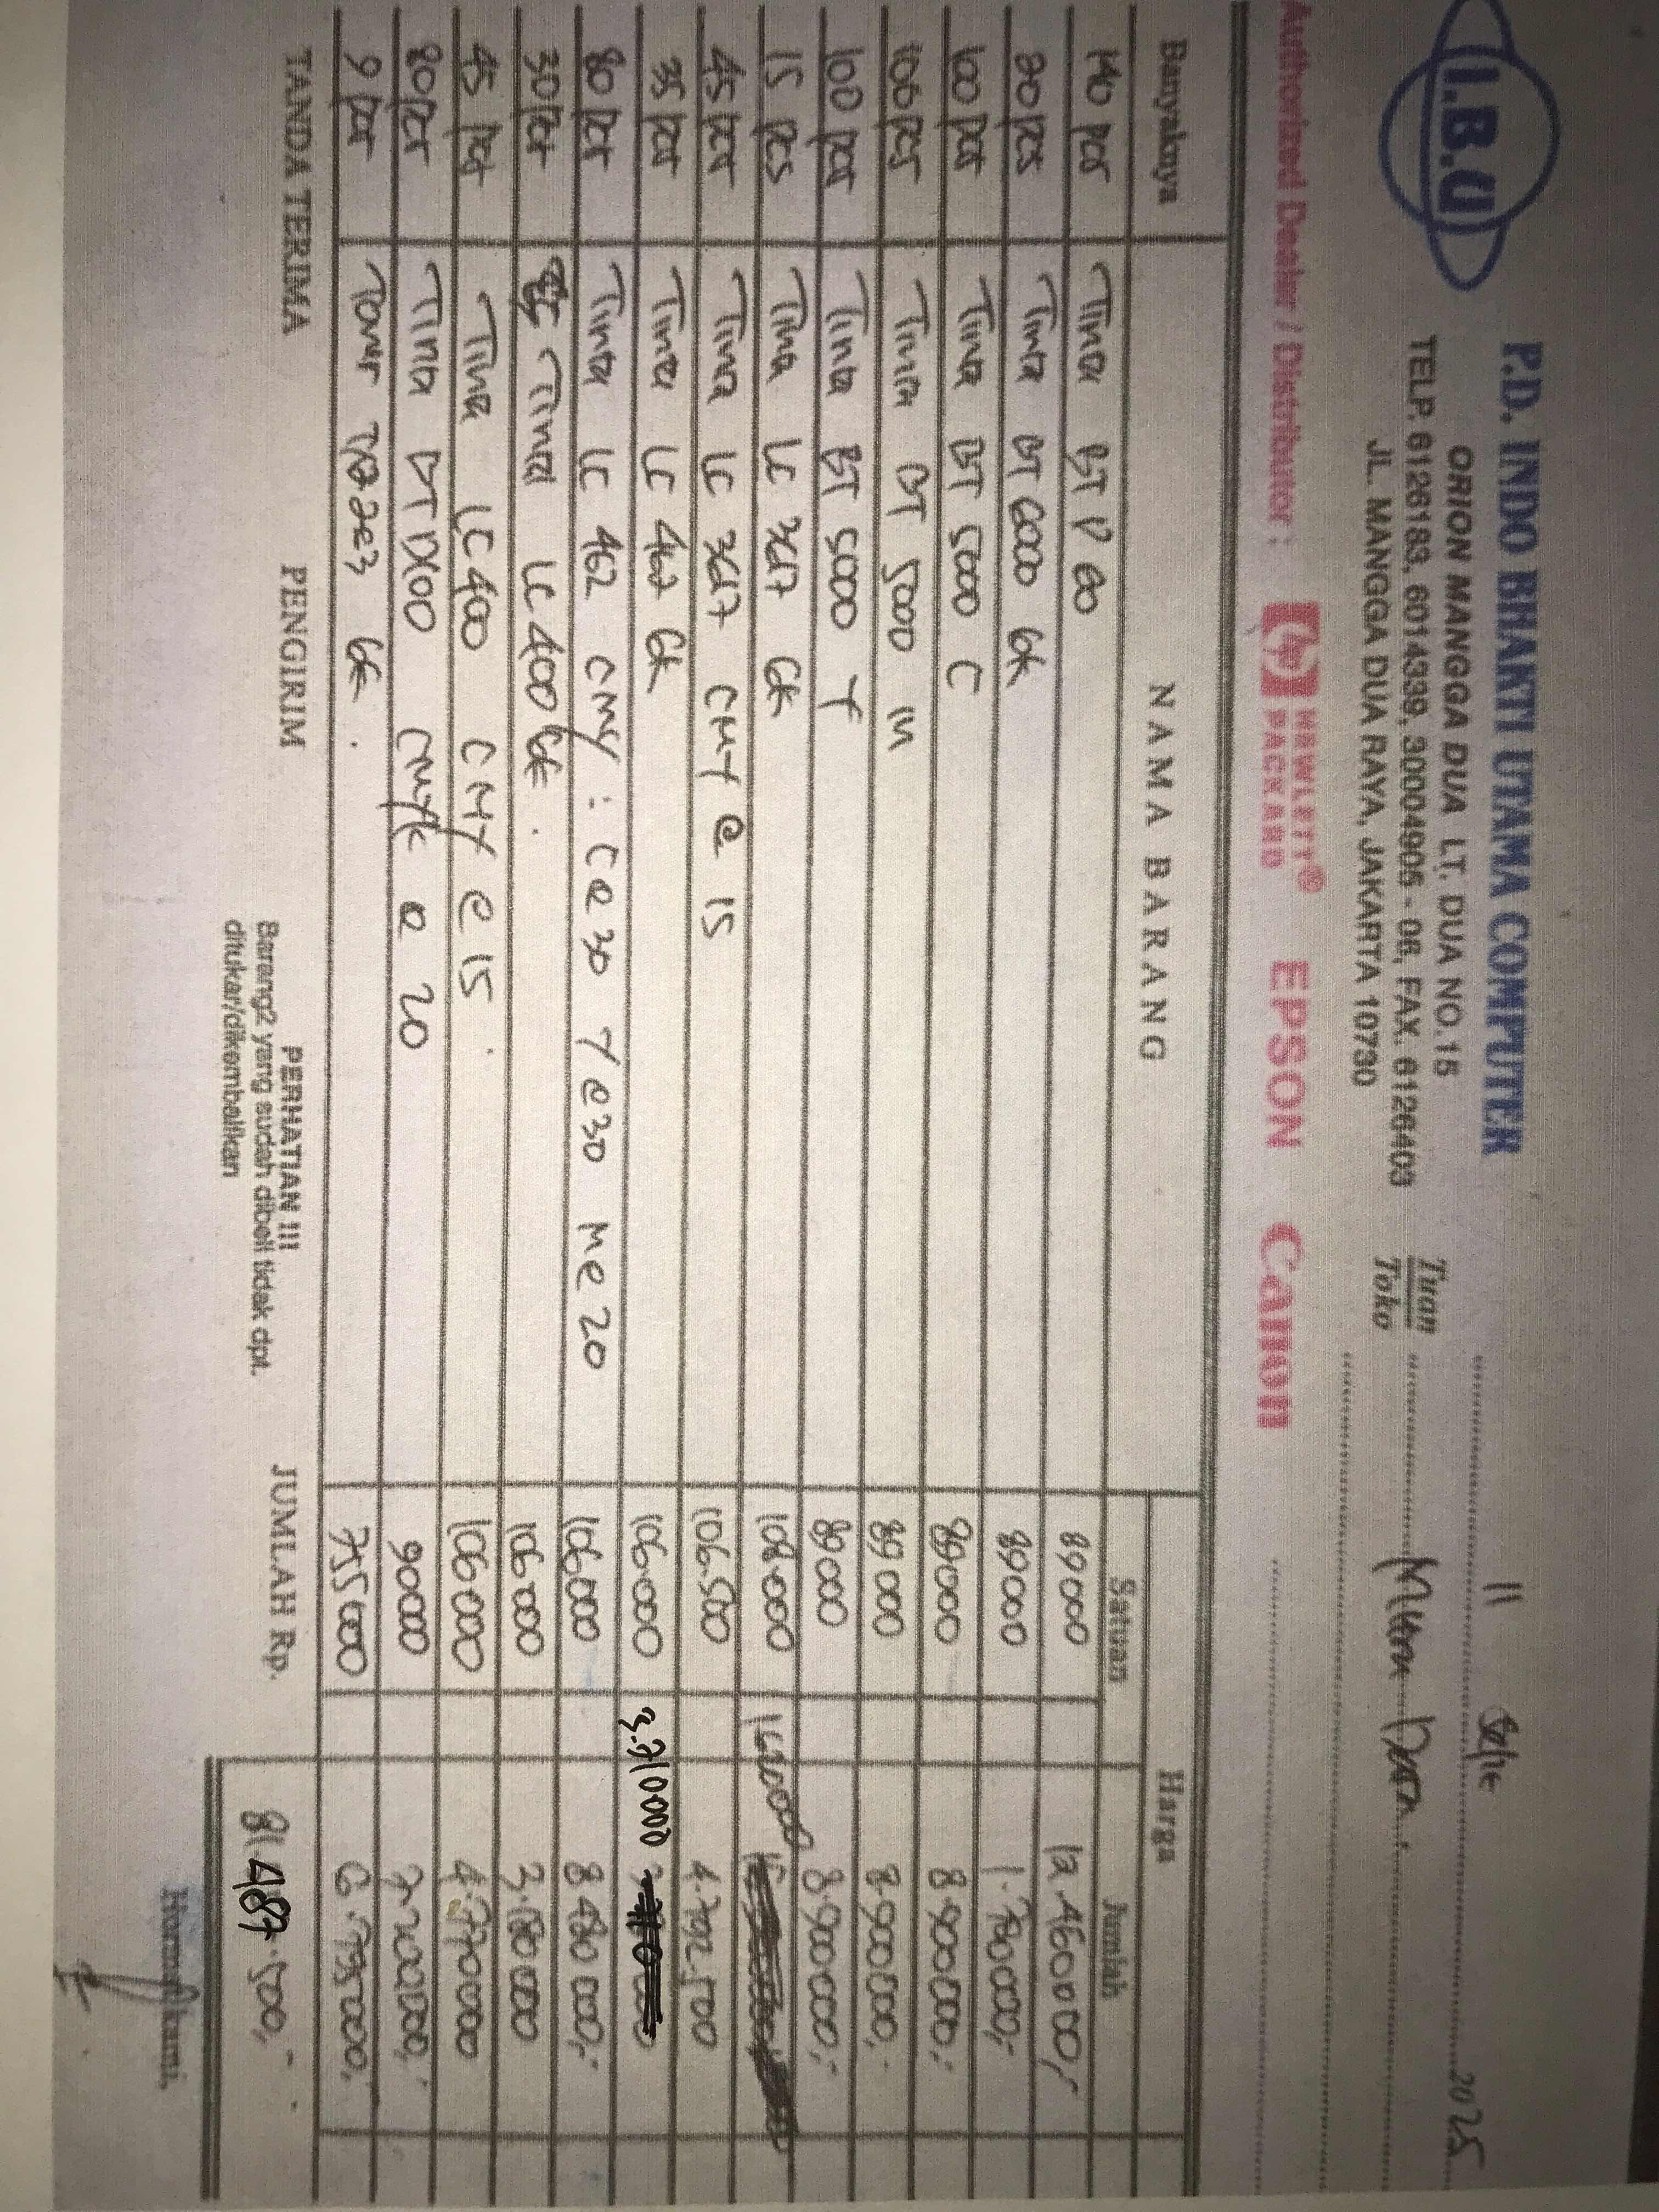 I.B.U
P.D. INDO BHAKTI UTAMA COMPUTER
ORION MANGGA DUA LT. DUA NO. 15
TELP. 6126183, 6014339, 30004905 - 06, FAX. 6126403
JL. MANGGA DUA RAYA, JAKARTA 10730
11 2025
Tuan
Toko
Authorized Dealer / Distributor : hp HEWLETT® PACKARD EPSON Canon
Banyaknya NAMA BARANG Harga
Satuan Jumlah
140 pcs Tinta BT D 60 89000 12.460.000,-
20 pcs Tinta BT 6000 BK 89000 1.780000,-
100 pcs Tinta BT 5000 C 89000 8.900.000,-
100 pcs Tinta BT 5000 M 89000 8.900.000,-
100 pcs Tinta BT 5000 Y 89000 8.900.000,-
15 pcs Tinta LC 3617 BK 108.000
45 pcs Tinta LC 3617 CMY @ 15 106.500 4.792.500
35 pcs Tinta LC 462 BK 106.000 3.710.000
80 pcs Tinta LC 462 CMY : C @ 30 Y @ 30 M @ 20 106.000 8.480.000,-
30 pcs Tinta LC 400 BK. 106.000 3.180.000
45 pcs Tinta LC 400 CMY @ 15. 106000 4.770.000
80 pcs Tinta BT D100 CMYK @ 20 90000 7.200.000,-
9 pcs Toner BK. 755000 6.795.000,-
TANDA TERIMA PENGIRIM PERHATIAN !!! JUMLAH Rp. 81.487.500,-
Barang2 yang sudah dibeli tidak dpt.
ditukar/dikembalikan
Hormat kami,